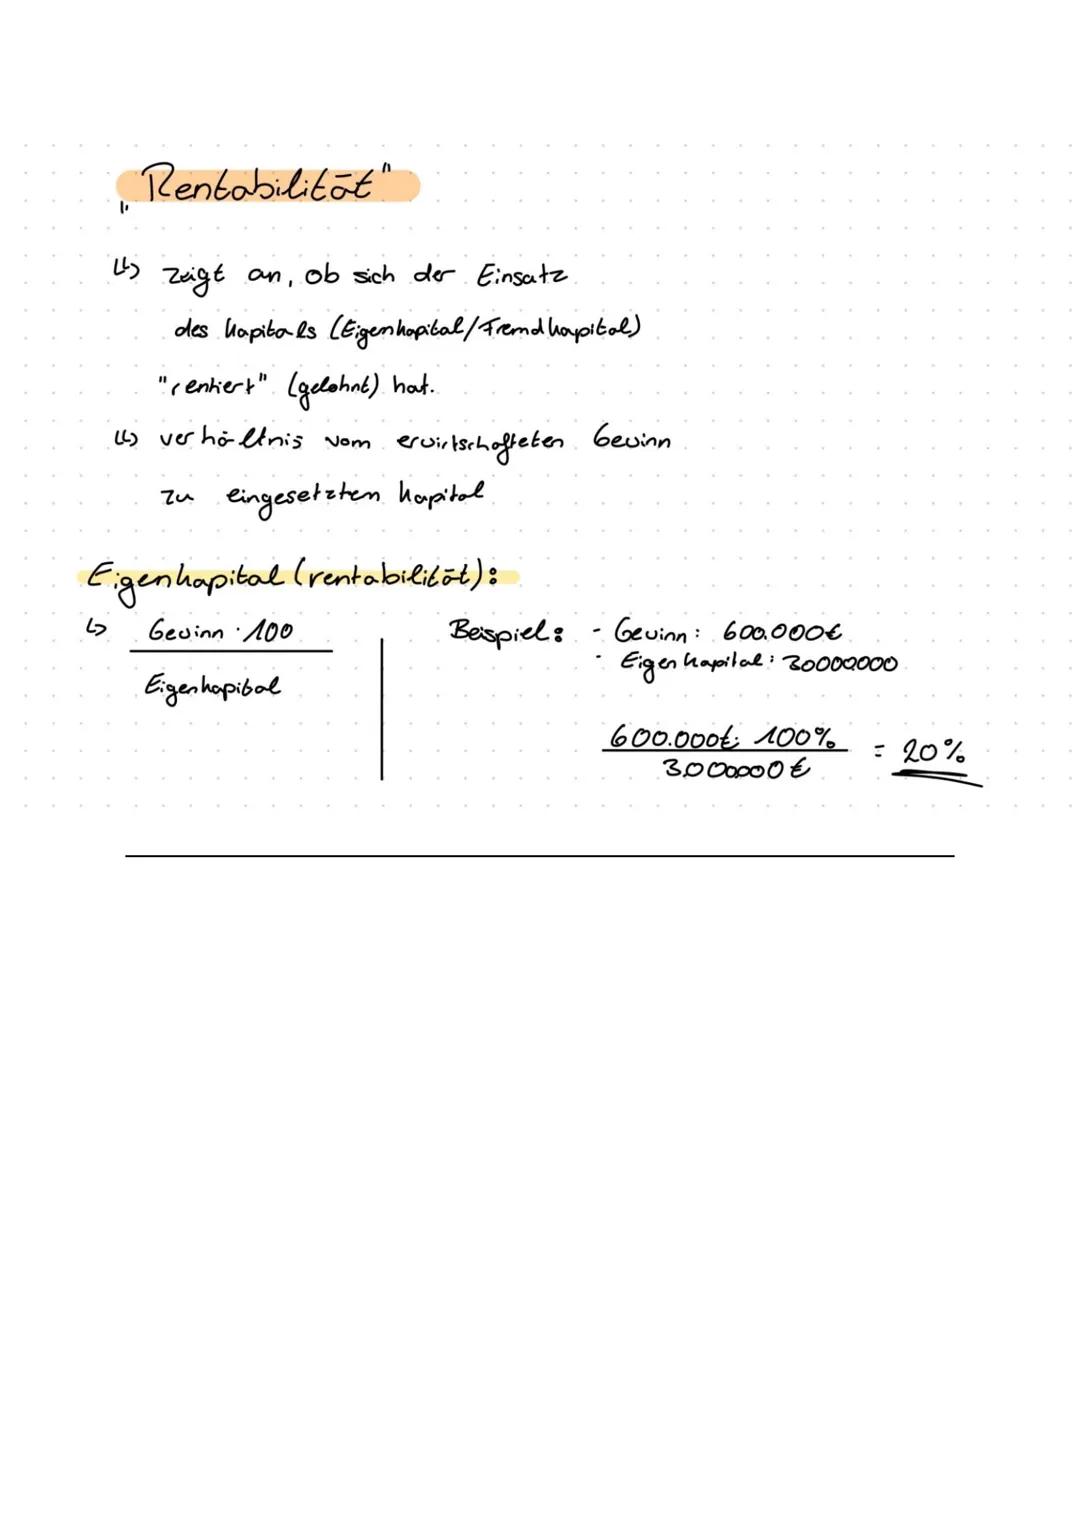 „Rentabilität"
↳ zeigt an, ob sich der Einsatz
des Kapitals (Eigenkapital/Fremdkapital)
"rentiert" (gelohnt) hat.
↳ verhältnis vom erwirtschafteten Gewinn
zu eingesetztem Kapital
Eigenkapital (rentabilität):
↳ Gewinn · 100
Eigenkapital
Beispiel: - Gewinn: 600.000€
- Eigenkapital: 30000000
600.000€ · 100%
3.000000€
= 20%